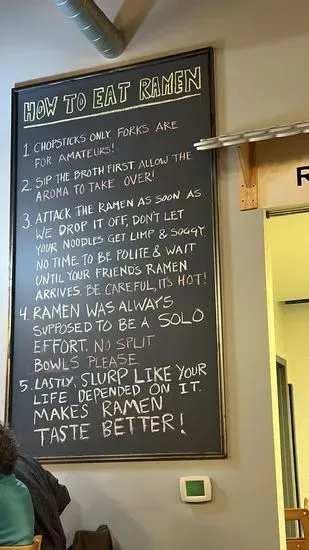 HOW TO EAT RAMEN
1. CHOPSTICKS ONLY. FORKS ARE
FOR AMATEURS!
2. SIP THE BROTH FIRST. ALLOW THE
AROMA TO TAKE OVER!
3. ATTACK THE RAMEN AS SOON AS
WE DROP IT OFF, DON'T LET
YOUR NOODLES GET LIMP & SOGGY.
NO TIME TO BE POLITE & WAIT
UNTIL YOUR FRIENDS RAMEN
ARRIVES. BE CAREFUL, IT'S HOT!
4. RAMEN WAS ALWAYS
SUPPOSED TO BE A SOLO
EFFORT. NO SPLIT
BOWLS PLEASE
5. LASTLY, SLURP LIKE YOUR
LIFE DEPENDED ON IT.
MAKES RAMEN
TASTE BETTER!
R